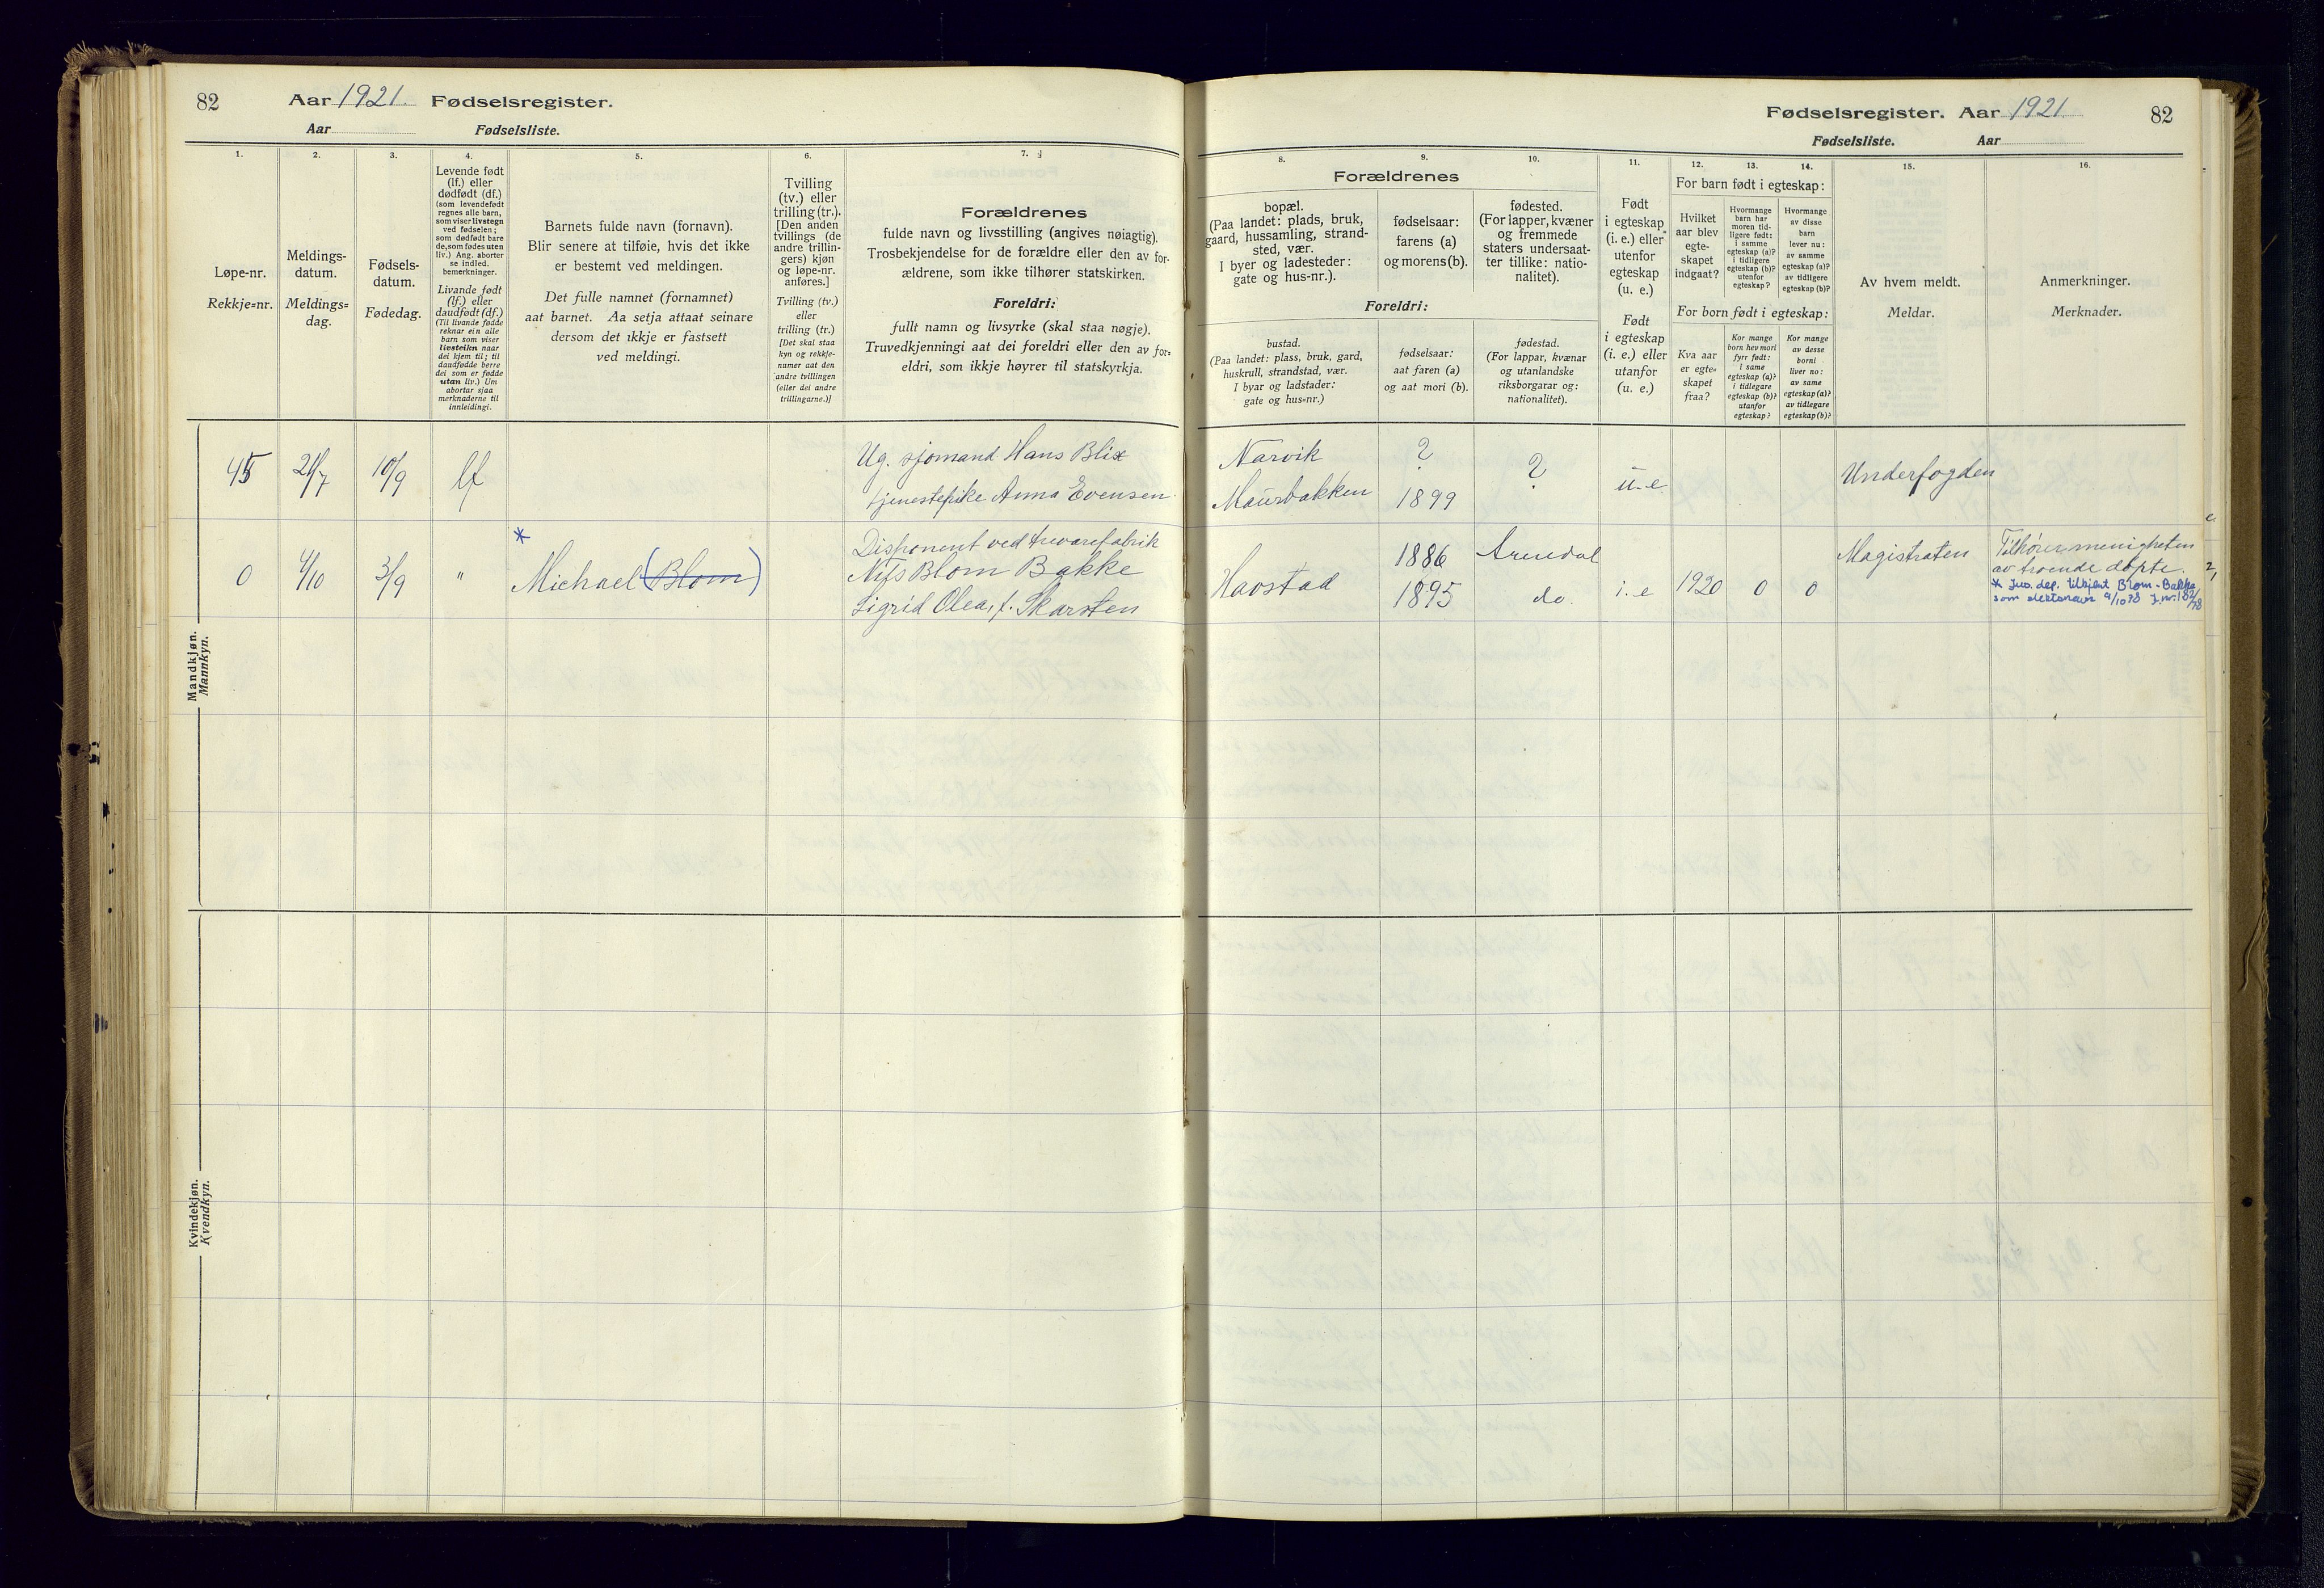 82 Aar 1921. Fødselsregister.
Aar Fødselsliste.
1.
Løpe-nr.
Rekkje=nr.
2.
Meldings-
datum.
Meldings=
dag.
3.
Fødsels-
datum.
Fødedag.
4.
Levende født
(lf.) eller
dødfødt (df.)
(som levendefødt
regnes alle barn,
som viser livstegn
ved fødselen;
som dødfødt bare
de, som fødes uten
liv.) Ang. aborter
se indled.
bemerkninger.
Livande født
(lf.) eller
daudfødt (df.)
(Til livande fødde
reknar ein alle
barn som viser
livsteikn naar
dei kjem til; til
daudfødde berre
dei som er fødde
utan liv.) Um
abortar sjaa
merknaderne til
innleidingi.
5.
Barnets fulde navn (fornavn).
Blir senere at tilføie, hvis det ikke
er bestemt ved meldingen.
Det fulle namnet (fornamnet)
aat barnet. Aa setja attaat seinare
dersom det ikkje er fastsett
ved meldingi.
6.
Tvilling
(tv.) eller
trilling (tr.).
[Den anden
tvillings (de
andre trillin-
gers) kjøn
og løpe-nr.
anføres.]
Tvilling (tv.)
eller
trilling (tr.)
[Det skal staa
kyn og rekkje-
numer aat den
andre tvillingen
(eller dei andre
trillingarne.)]
7.
Forældrenes
fulde navn og livsstilling (angives nøiagtig).
Trosbekjendelse for de forældre eller den av for-
ældrene, som ikke tilhører statskirken.
Foreldri:
fullt namn og livsyrke (skal staa nøgje).
Truvedkjenningi aat dei foreldri eller den av for=
eldri, som ikkje høyrer til statskyrkja.
Mandkjøn.
Mannkyn.
45 21/7 10/9 lf
Ug. sjomand Hans Blix
tjenestepike Anna Evensen
*
0 4/10 3/9 " Michael (Blom)
Disponent ved trevarefabrik
Nils Blom Bakke
Sigrid Olea, f. Skarsten
Kvindekjøn.
Kvendkyn.
Fødselsregister. Aar 1921. 82
Fødselsliste. Aar
Forældrenes
8.
bopæl.
(Paa landet: plads, bruk,
gaard, hussamling, strand-
sted, vær.
I byer og ladesteder:
gate og hus-nr.).
9.
fødselsaar:
farens (a)
og morens (b).
10.
fødested.
(For lapper, kvæner
og fremmede
staters undersaat-
ter tillike: natio-
nalitet).
Foreldri:
bustad.
(Paa landet: plass, bruk, gard,
huskrull, strandstad, vær.
I byar og ladstader:
gate og hus=nr.)
fødselsaar:
aat faren (a)
og aat mori (b).
fødestad.
(For lappar, kvænar
og utanlandske
riksborgarar og:
nationalitet).
11.
Født
i egteskap
(i. e.) eller
utenfor
egteskap
(u. e.)
Født
i egteskap
(i. e.) eller
utanfor
(u. e.)
For barn født i egteskap:
12.
Hvilket
aar blev
egte-
skapet
indgaat?
13.
Hvormange
barn har
moren tid-
ligere født:
i samme
egteskap (a)?
i tidligere
egteskap (b)?
utenfor
egteskap?
14.
Hvormange
av disse
barn
lever nu:
av samme
egteskap (a)?
av tidligere
egteskap (b)?
For born født i egteskap:
Kva aar
er egte=
skapet
fraa?
Kor mange
born hev mori
fyrr født:
i same
egteskap (a)?
i tidlegare
egteskap (b)?
utanfor
egteskap?
Kor mange
av desse
borni
liver no:
av same
egteskap (a)?
av tidlegare
egteskap (b)?
15.
Av hvem meldt.
Meldar.
16.
Anmerkninger.
Merknader.
Narvik ? ? u.e Underfogden
Maurbakken 1899
Havstad 1886 Arendal i.e 1920 0 0 Magistraten
1895 do.
Tilhører menigheten
av troende døpte.
* Jus. dep. tilkjent Blom-Bakke
som slektsnavn J.nr. 182/78